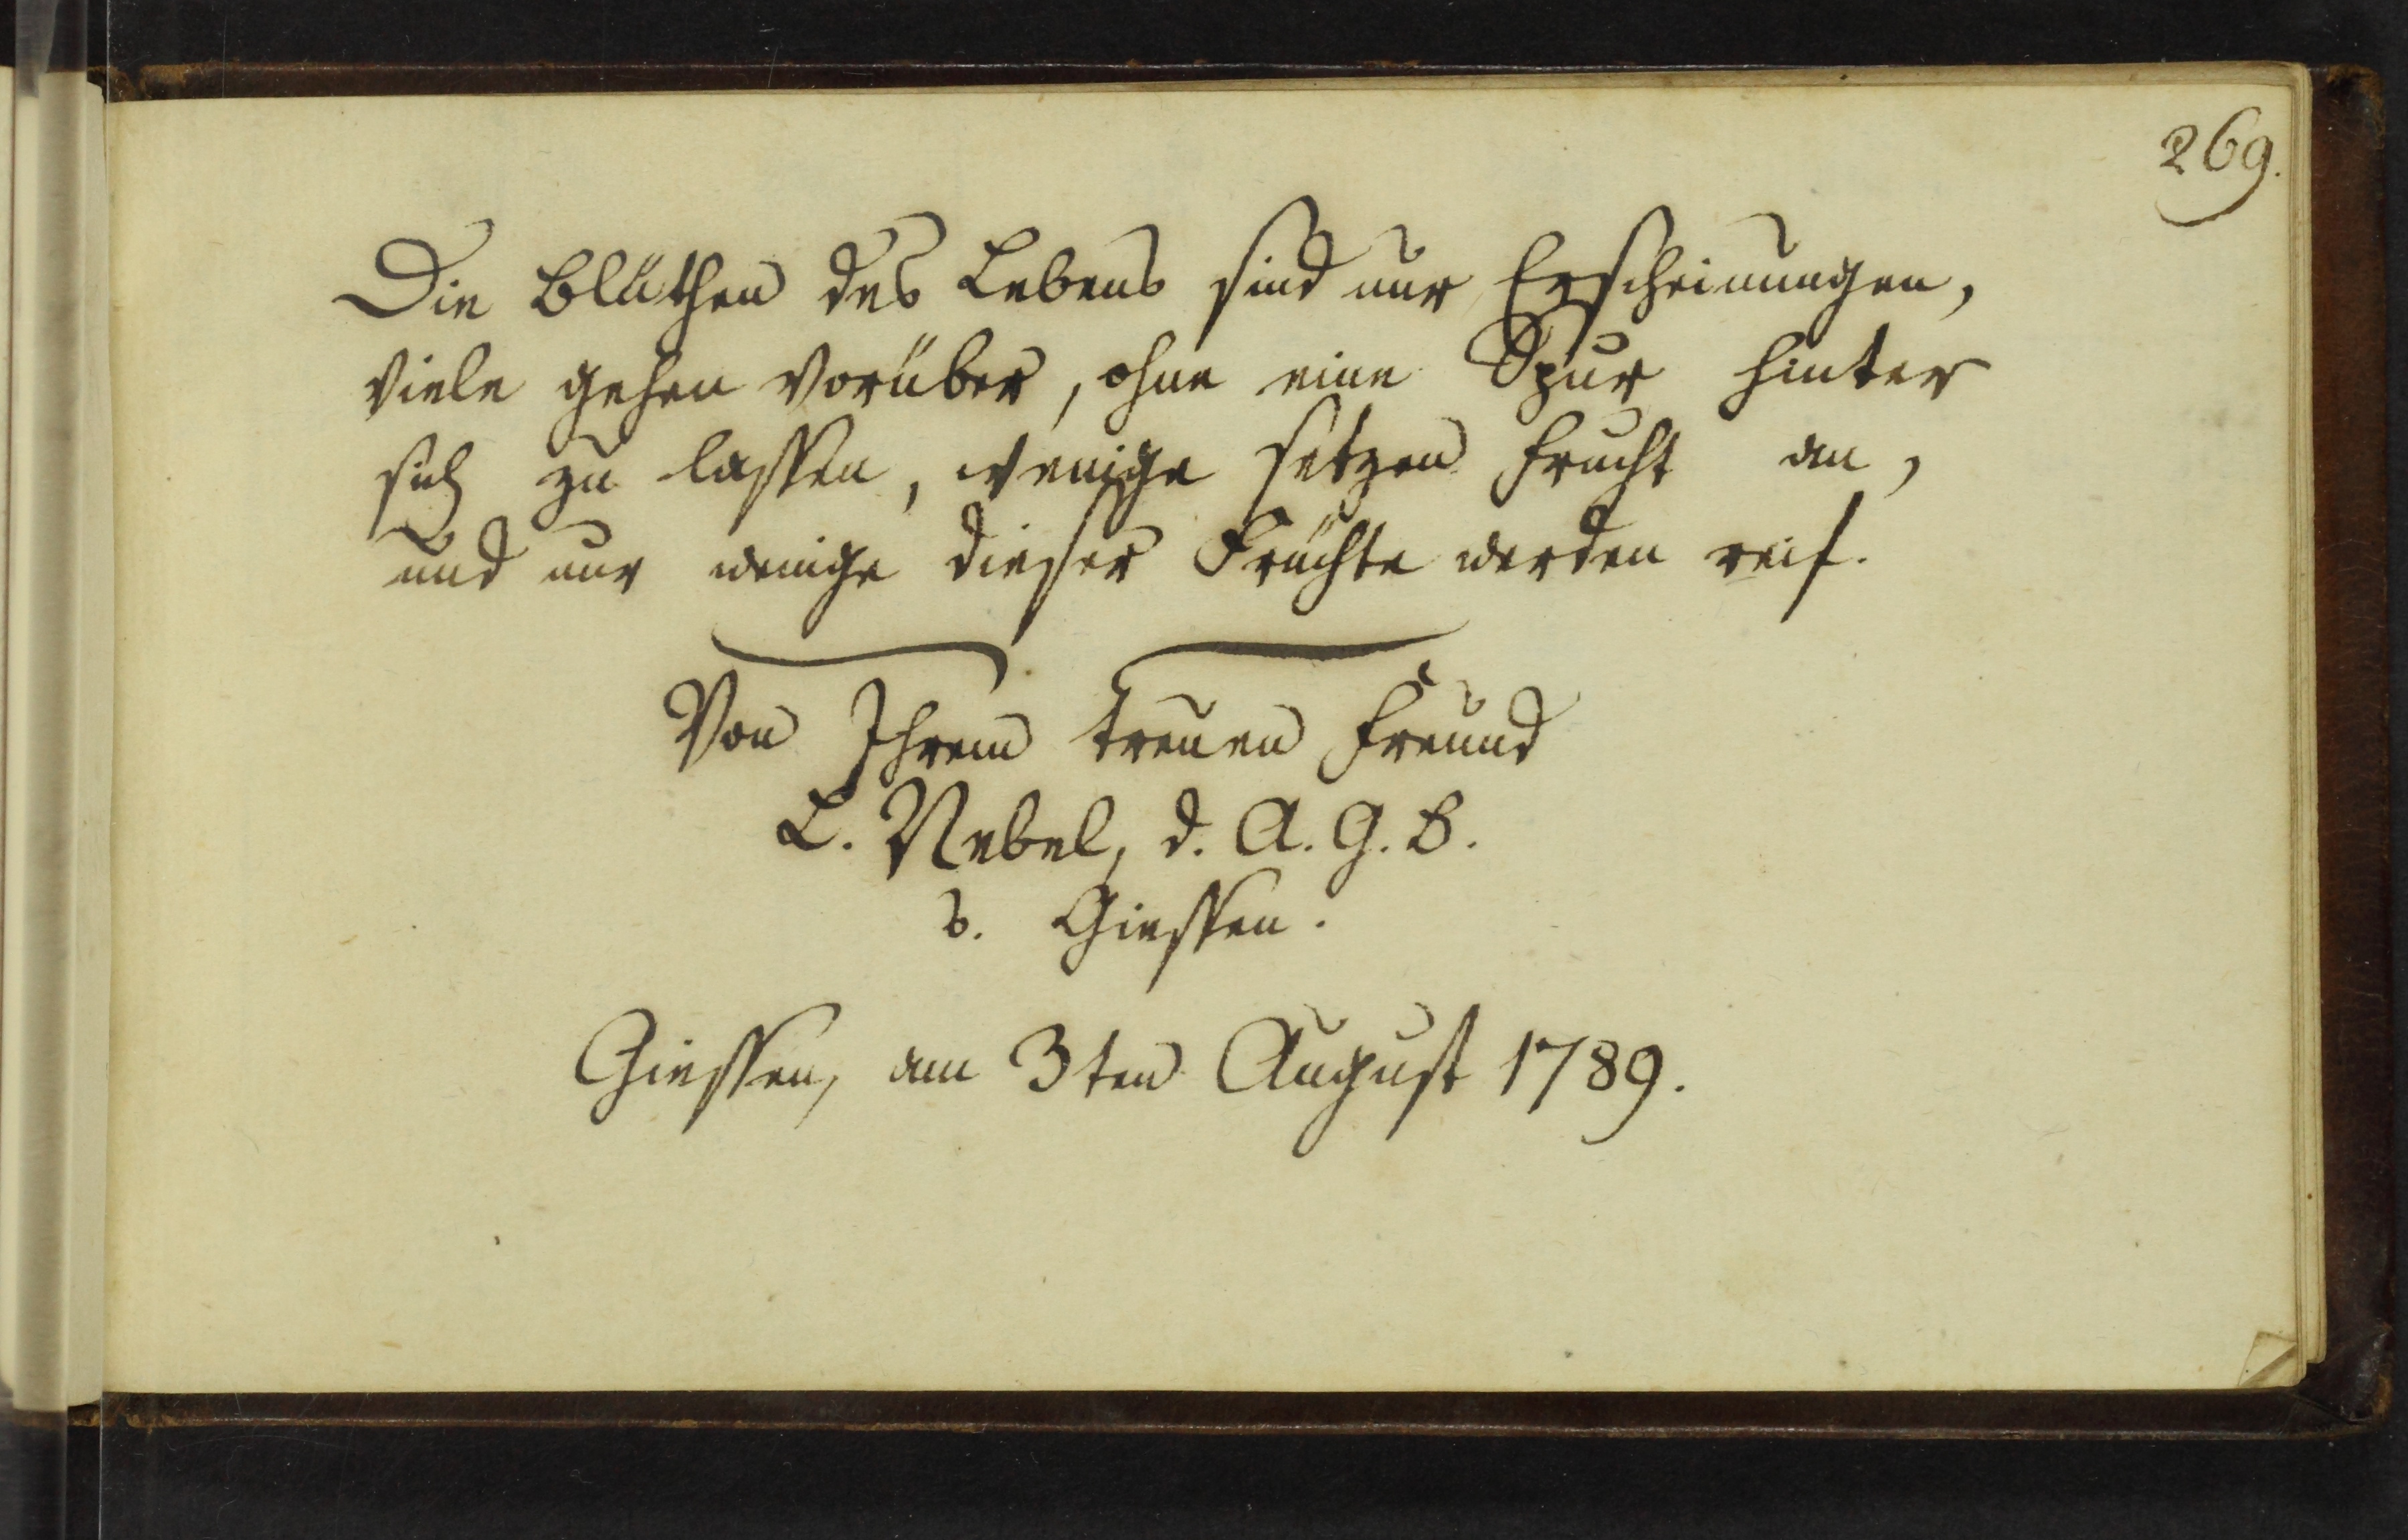 269.
Die Blüthen des Lebens sind nur Erscheinungen,
viele gehen vorüber, ohne eine Spur hinter
sich zu lassen, wenige setzen Frucht an,
und nur wenige dieser Früchte werden reif.
Von Ihrem treuen Freund
L. Nebel, d. A. G. B.
v. Giessen.
Giessen, am 3ten August 1789.